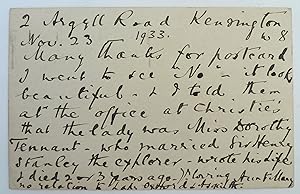 2 Argyll Road Kensington
Nov. 23 1933. W 8
Many thanks for postcard
I went to see "No" - it looks
beautiful - & I told them
at the office at Christie's
that the lady was Miss Dorothy
Tennant - who married Sir Henry
Stanley the explorer - wrote his life
& died 2 or 3 years ago - Yr loving Aunt
no relation to Lady Oxford & Asquith.